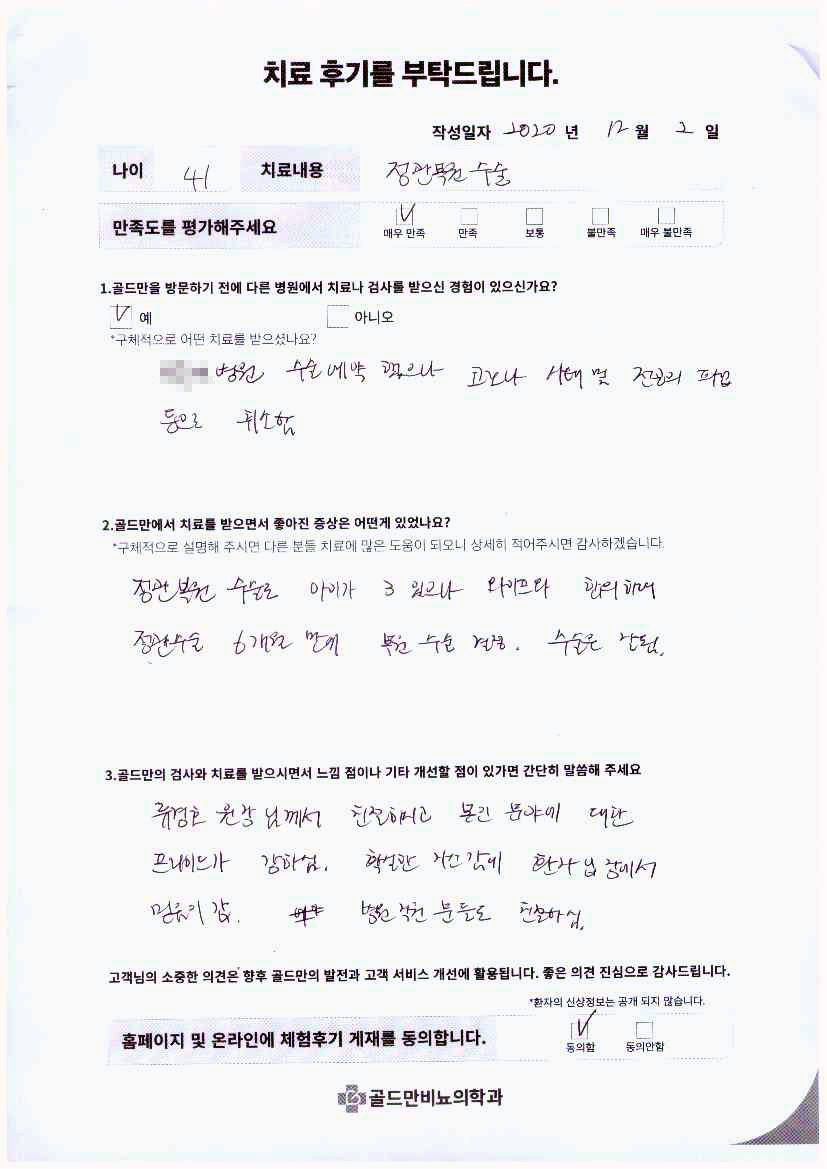 치료 후기를 부탁드립니다.
작성일자 2020 년 12 월 2 일
나이 41 치료내용 정관복원 수술
만족도를 평가해주세요 매우 만족 만족 보통 불만족 매우 불만족
1.골드만을 방문하기 전에 다른 병원에서 치료나 검사를 받으신 경험이 있으신가요?
예 아니오
*구체적으로 어떤 치료를 받으셨나요?
병원 수술예약 했으나 코로나 사태 및 전공의 파업
등으로 취소함
2.골드만에서 치료를 받으면서 좋아진 증상은 어떤게 있었나요?
*구체적으로 설명해 주시면 다른 분들 치료에 많은 도움이 되오니 상세히 적어주시면 감사하겠습니다.
정관복원 수술로 아이가 3 있으나 와이프와 합의하여
정관수술 6개월 만에 복원 수술 결정. 수술은 잘됨.
3.골드만의 검사와 치료를 받으시면서 느낌 점이나 기타 개선할 점이 있가면 간단히 말씀해 주세요
류경호 원장님께서 친절하시고 본인 분야에 대한
프라이드가 강하심. 확실한 자신감에 환자 입장에서
믿음이 감. 병원 직원 분들도 친절하심.
고객님의 소중한 의견은 향후 골드만의 발전과 고객 서비스 개선에 활용됩니다. 좋은 의견 진심으로 감사드립니다.
*환자의 신상정보는 공개 되지 않습니다.
홈페이지 및 온라인에 체험후기 게재를 동의합니다. 동의함 동의안함
골드만비뇨의학과